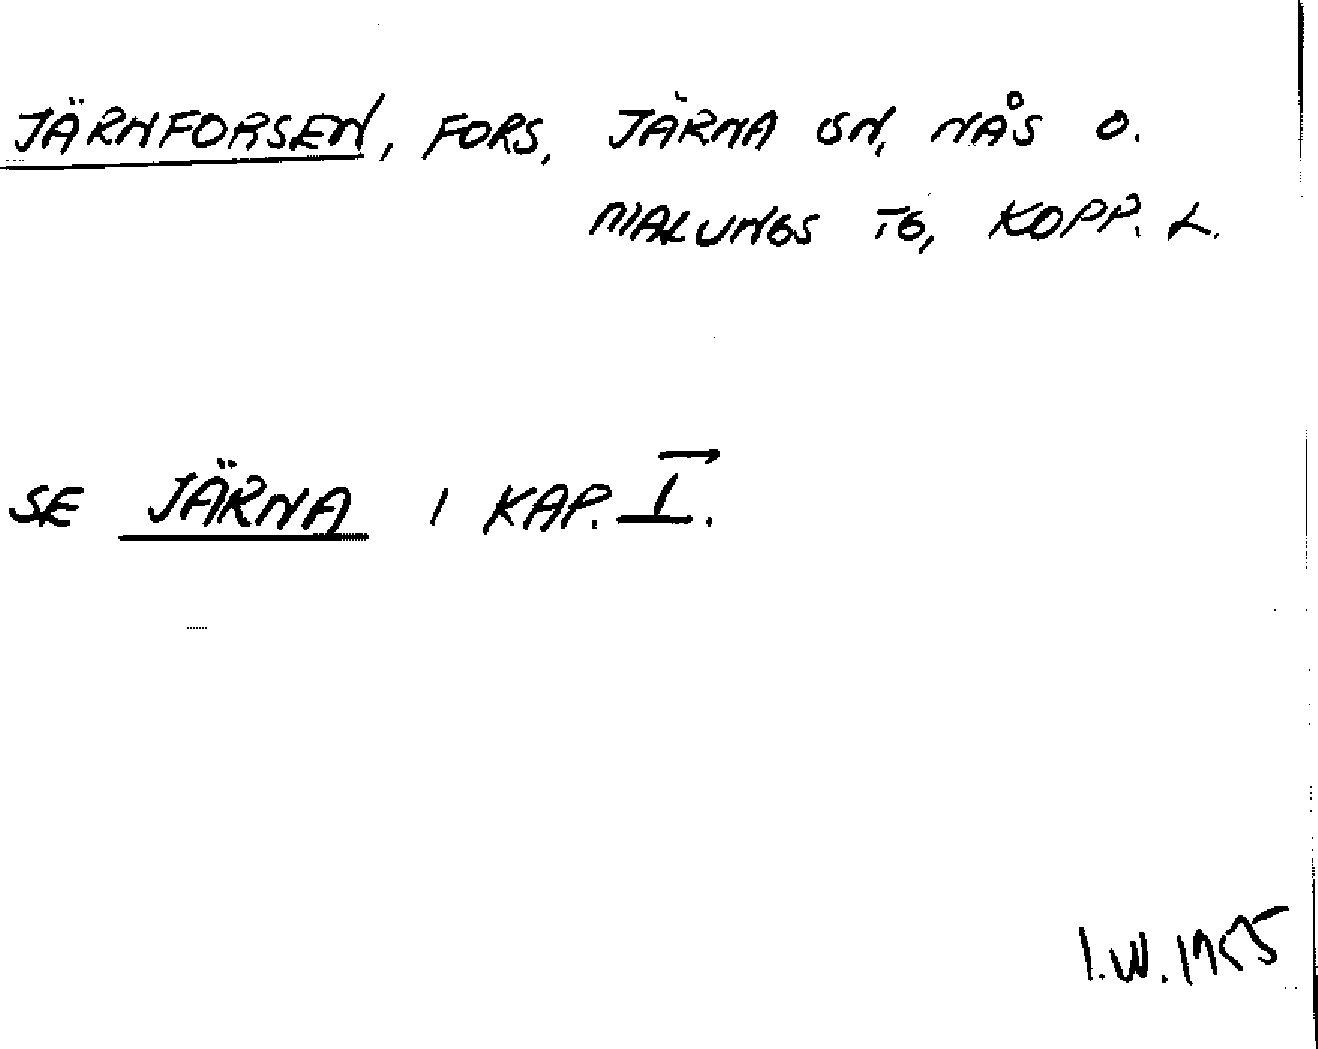 JÄRNFORSEN, FORS, JÄRNA SN, NÅS O.
MALUNGS TG, KOPP. L.
SE JÄRNA I KAP. I.
I.W.